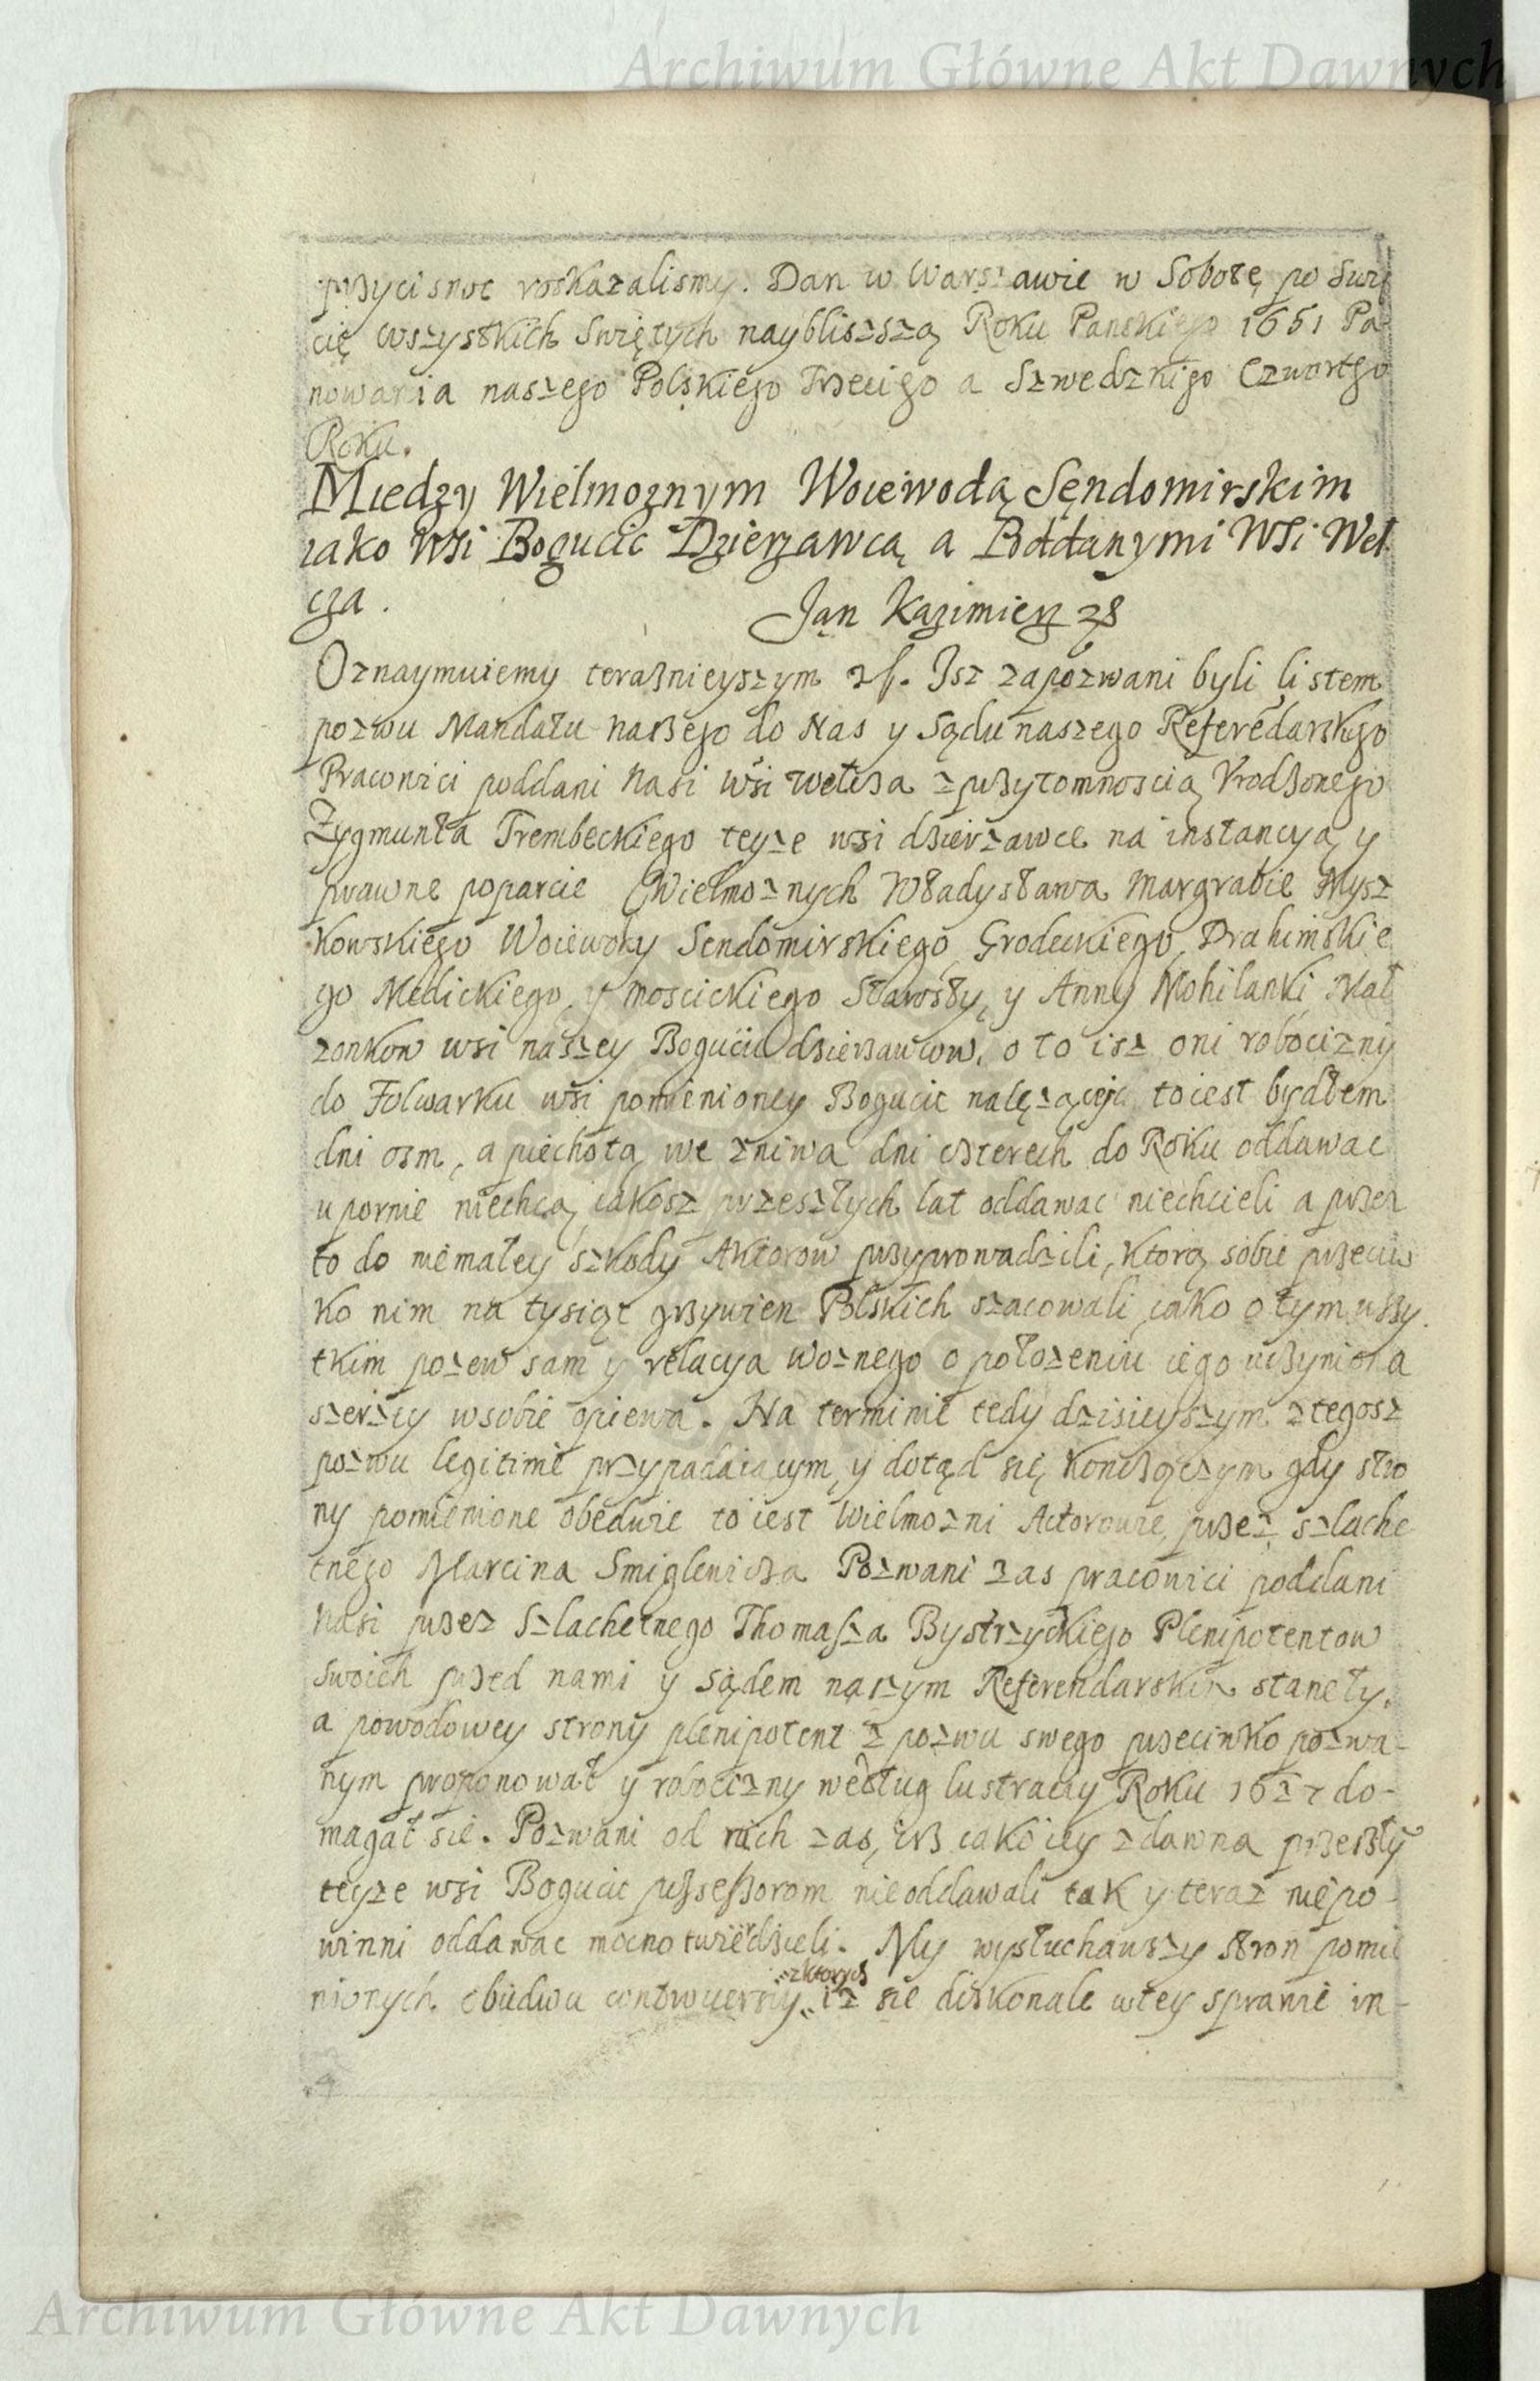 Archiwum Główne Akt Dawnych
przycisnoc roskazalismy. Dan w Warszawie w Sobotę po Swię
cię wszystkich Swiętych naybliszszą Roku Panskiego 1651 Pa-
nowania naszego Polskiego Trzeciego a Szwedzkigo Czwartego
Roku.
Miedzy Wielmoznym Woiewodą Sęndomirskim
iako Wsi Bogucic Dzierzawcą a Poddanymi Wsi Wel
cza.
Jan Kazimierz
Oznaymuiemy terasznieyszym. Isz zapozwani byli listem
pozwu Mandatu naszego do Nas y Sądu naszego Referędarskgo
Pracowici poddani nasi wsi Welcza z przytomnoscią Vrodzonego
Zygmunta Trembeckiego teyze wsi dzierzawce na instancyą y
prawne poparcie Wielmoznych Władysława Margrabie Mysz
kowskiego Woiewody Sendomirskiego, Grodeckiego, Drahimskie
go Medickiego, y Moscickiego Starosty, y Anny Mohilanki Mał
zonkow wsi naszey Bogucic dzierzawcow, o to isz oni robocizny
do Folwarku wsi pomienioney Bogucic nalęzącej to iest bydłem
dni osm, a piechotą we zniwa dni czterech do Roku oddawac
upornie niechcą, iakosz przeszłych lat oddawac niechcieli a przez
to do niemałey szkody Aktorow przyprowadzili, ktorą sobie przeciw
ko nim na tysiąc grzywien Polskich szacowali iako o tym wszy
tkim pozew sam y relacya woznego o połozeniu iego uczyniona
szerzey w sobie opiewa. Na terminie tedy dzisieyszym z tegosz
pozwu legitime przypadaiącym, y dotąd się konczączym gdy stro
ny pomienione obedwie to iest Wielmozni Actorowie, przez szlache
tnego Marcina Smiglenicza Pozwani zas pracowici poddani
nasi przez Szlachetnego Thomasza Bystrzyckiego Plenipotentow
swoich przed nami y sądem naszym Referendarskim staneły.
a powodowey strony plenipotent z pozwu swego przeciwko pozwa-
nym proponował y robocizny według lustracyy Roku 1627 do-
magał sie. Pozwani od nich zas, isz iako iey zdawna przeszły
teyze wsi Bogucic possessorom nieoddawali tak y teraz nie po-
winni oddawac mocno twierdzieli. My wysłuchawszy stron pomie
z ktorych
nionych obudwu controuersiy, iz sie doskonale w tey sprawie in-
Archiwum Główne Akt Dawnych